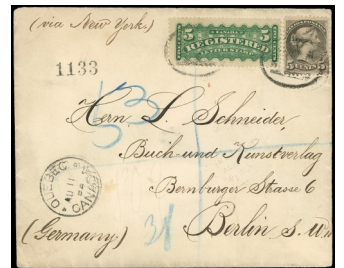 (via New York.)
5 REGISTERED 5
5 CENTS 5
1133
Herrn L. Schneider,
Buch- und Kunstverlag
Bernburger Strasse 6
Berlin S. W.
(Germany.)
QUEBEC
CANADA